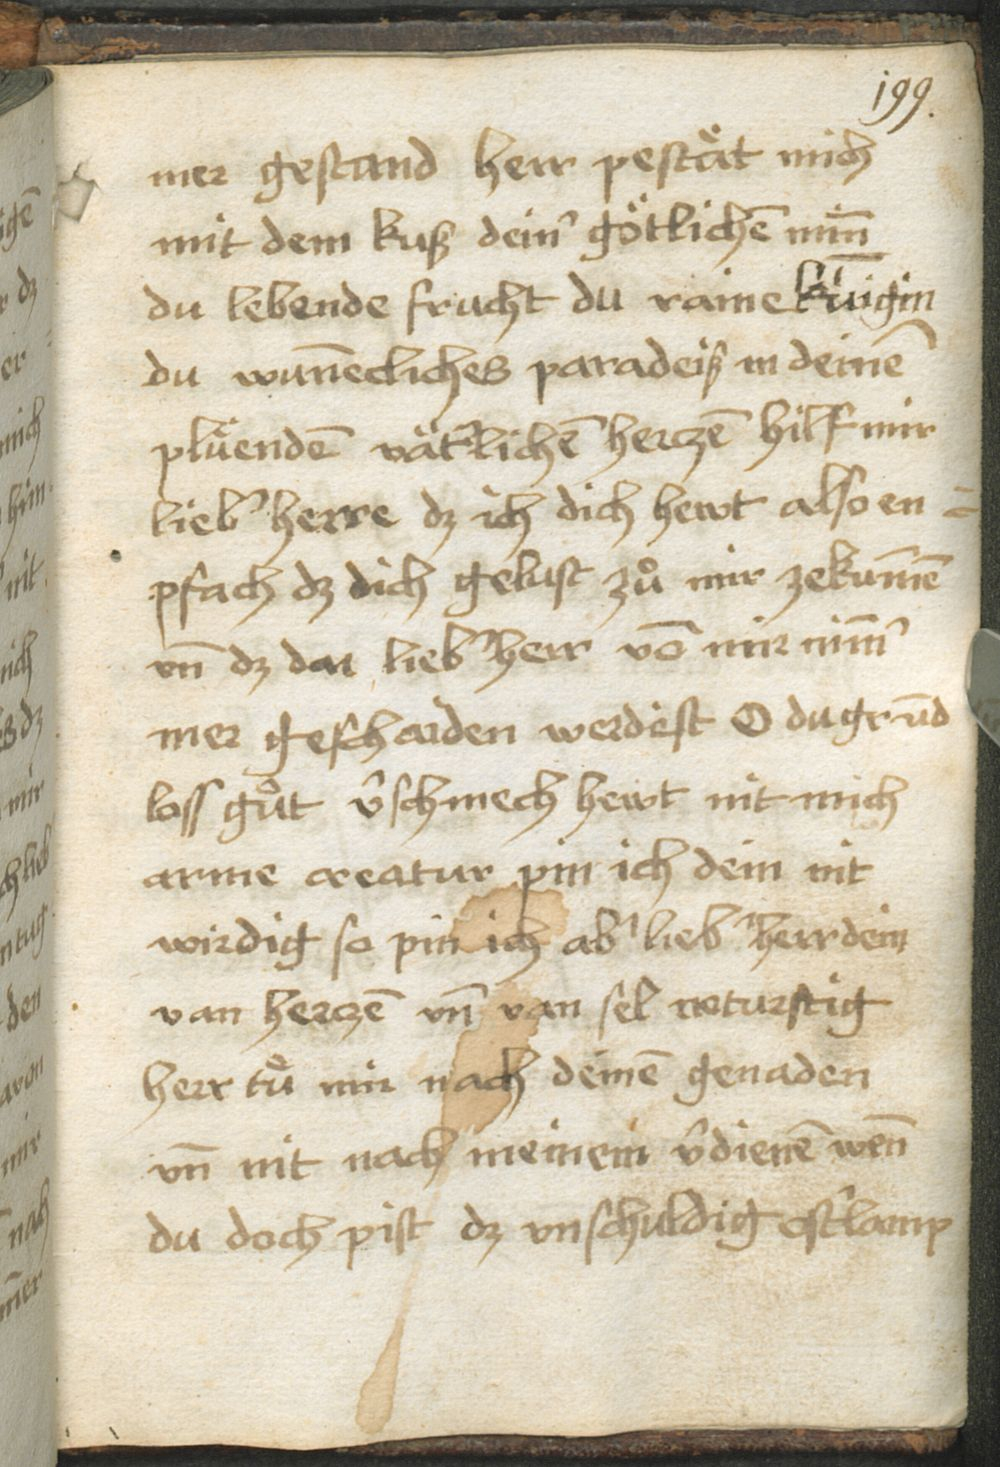 199.
mer gestand herr pestät mich
mit dem kuß dein' götlichē min̄
du lebende frucht du raine künigin
du wun̄ecliches paradeiß in deinē
plüendē vät'lichē herczē hilf mir
lieb' herre dz ich dich hewt also en=
pfach dz dich gelust zů mir zekum̄ē
vn̄ dz du lieb' herr vō mir nim̄'
mer geschaiden werdest O du grūd
loss gůt v'schmech hewt nit mich
arme creatur pin ich dein nit
wirdig so pin ich ab' lieb' herr dein
van herczē vn̄ van sel noturftig
herr tů mir nach deinē genaden
vn̄ nit nach meinem v'dienē wen̄
du doch pist dz vnschuldig ost'lamp